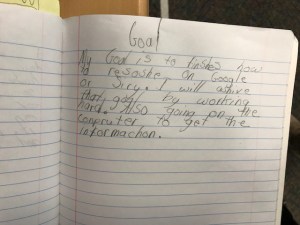 Goal
My Goal is to finshes how
to resashe. On Google
or Siry. I will achive
that goal by working
hard. Also going on the
conpruter to get the
informachon.